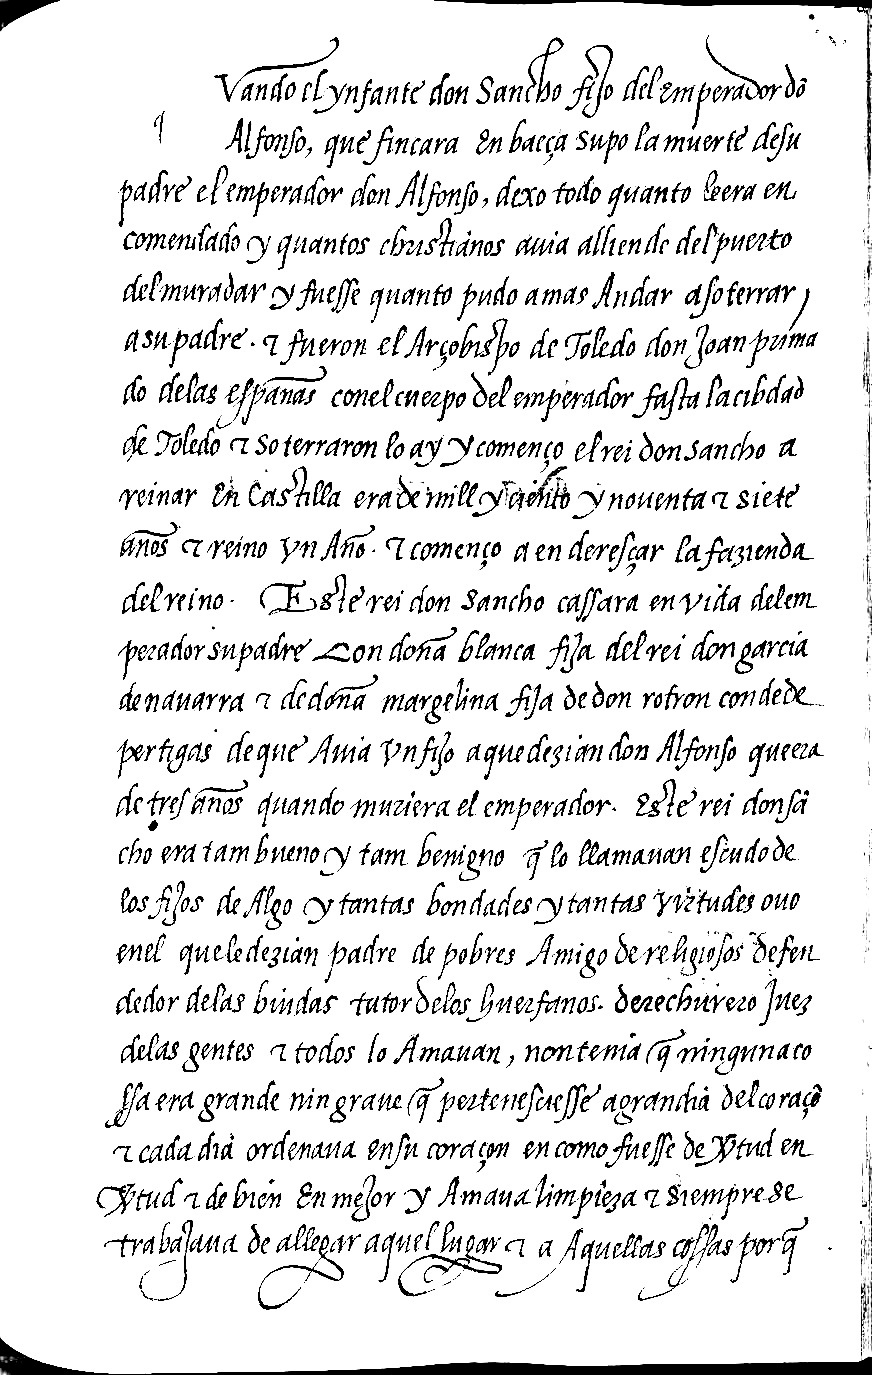 q Vando el ynfante don Sancho fijo del emperador dõ
Alfonso, que fincara en baeça supo la muerte de su
padre el emperador don Alfonso, dexo todo quanto le era en
comendado y quantos christianos auia alliende del puerto
del muradar y fuesse quanto pudo a mas Andar a soterrar
a su padre. ⁊ fueron el Arçobispo de Toledo don Joan prima
do delas españas conel cuerpo del emperador fasta la cibdad
de Toledo ⁊ soterraron lo ay y començo el rei don sancho a
reinar en Castilla era de mill y ciento y nouenta ⁊ siete
años ⁊ reino vn Año. ⁊ començo a en deresçar la fazienda
del reino. Este rei don Sancho cassara en vida del em
perador su padre Con doña blanca fija del rei don garcia
de nauarra ⁊ de doña margelina fija de don rotron conde de
pertigas de que Auia vn fijo a que dezian don Alfonso que era
de tres años quando muriera el emperador. Este rei don sã
cho era tam bueno y tam benigno q̃ lo llamauan escudo de
los fijos de Algo y tantas bondades y tantas virtudes ouo
enel que le dezian padre de pobres Amigo de religiosos defen
dedor delas biudas tutor delos huerfanos. derechurero Juez
delas gentes ⁊ todos lo Amauan, non tenia q̃ ninguna co
ssa era grande nin graue q̃ pertenesciesse a grandia del coraçõ
⁊ cada dia ordenaua en su coraçon en como fuesse de vr̃tud en
vr̃tud ⁊ de bien en mejor y Amaua limpieza ⁊ siempre se
trabajaua de allegar aquel lugar ⁊ a Aquellas cossas porq̃